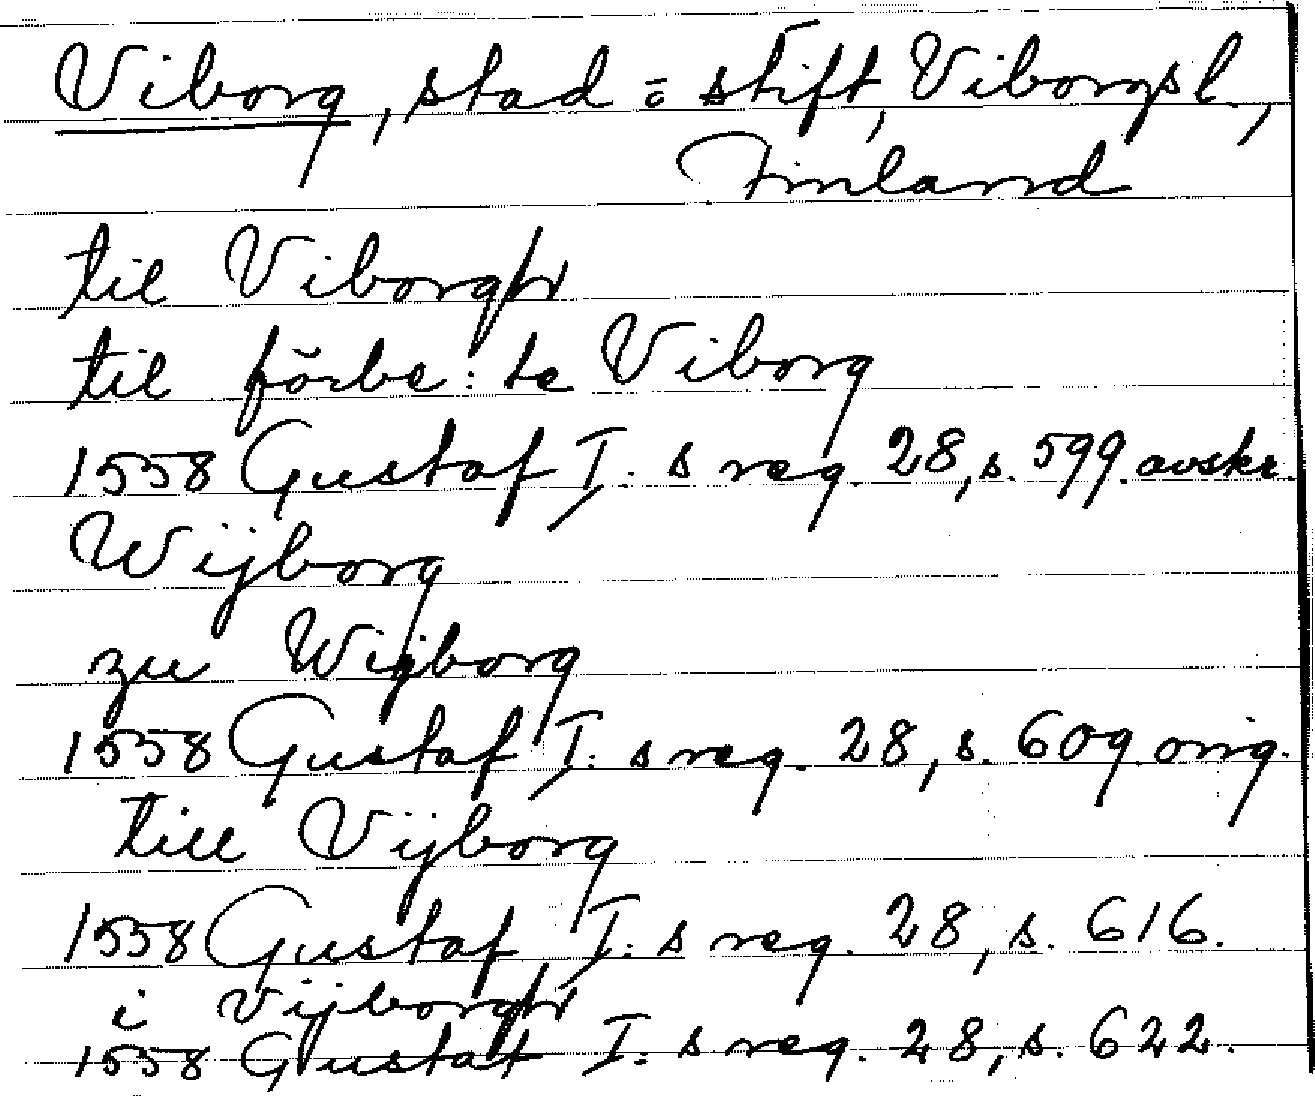 Viborg, stad o. stift, Viborgs l.,
Finland
til Viborgh
til förbe:te Viborg
1558 Gustaf I:s reg. 28, s. 599. avskr.
Wijborg
zu Wijborg
1558 Gustaf I:s reg. 28, s. 609. orig.
till Vijborg
1558 Gustaf I:s reg. 28, s. 616.
i Vijborgh
1558 Gustaf I:s reg. 28, s. 622.